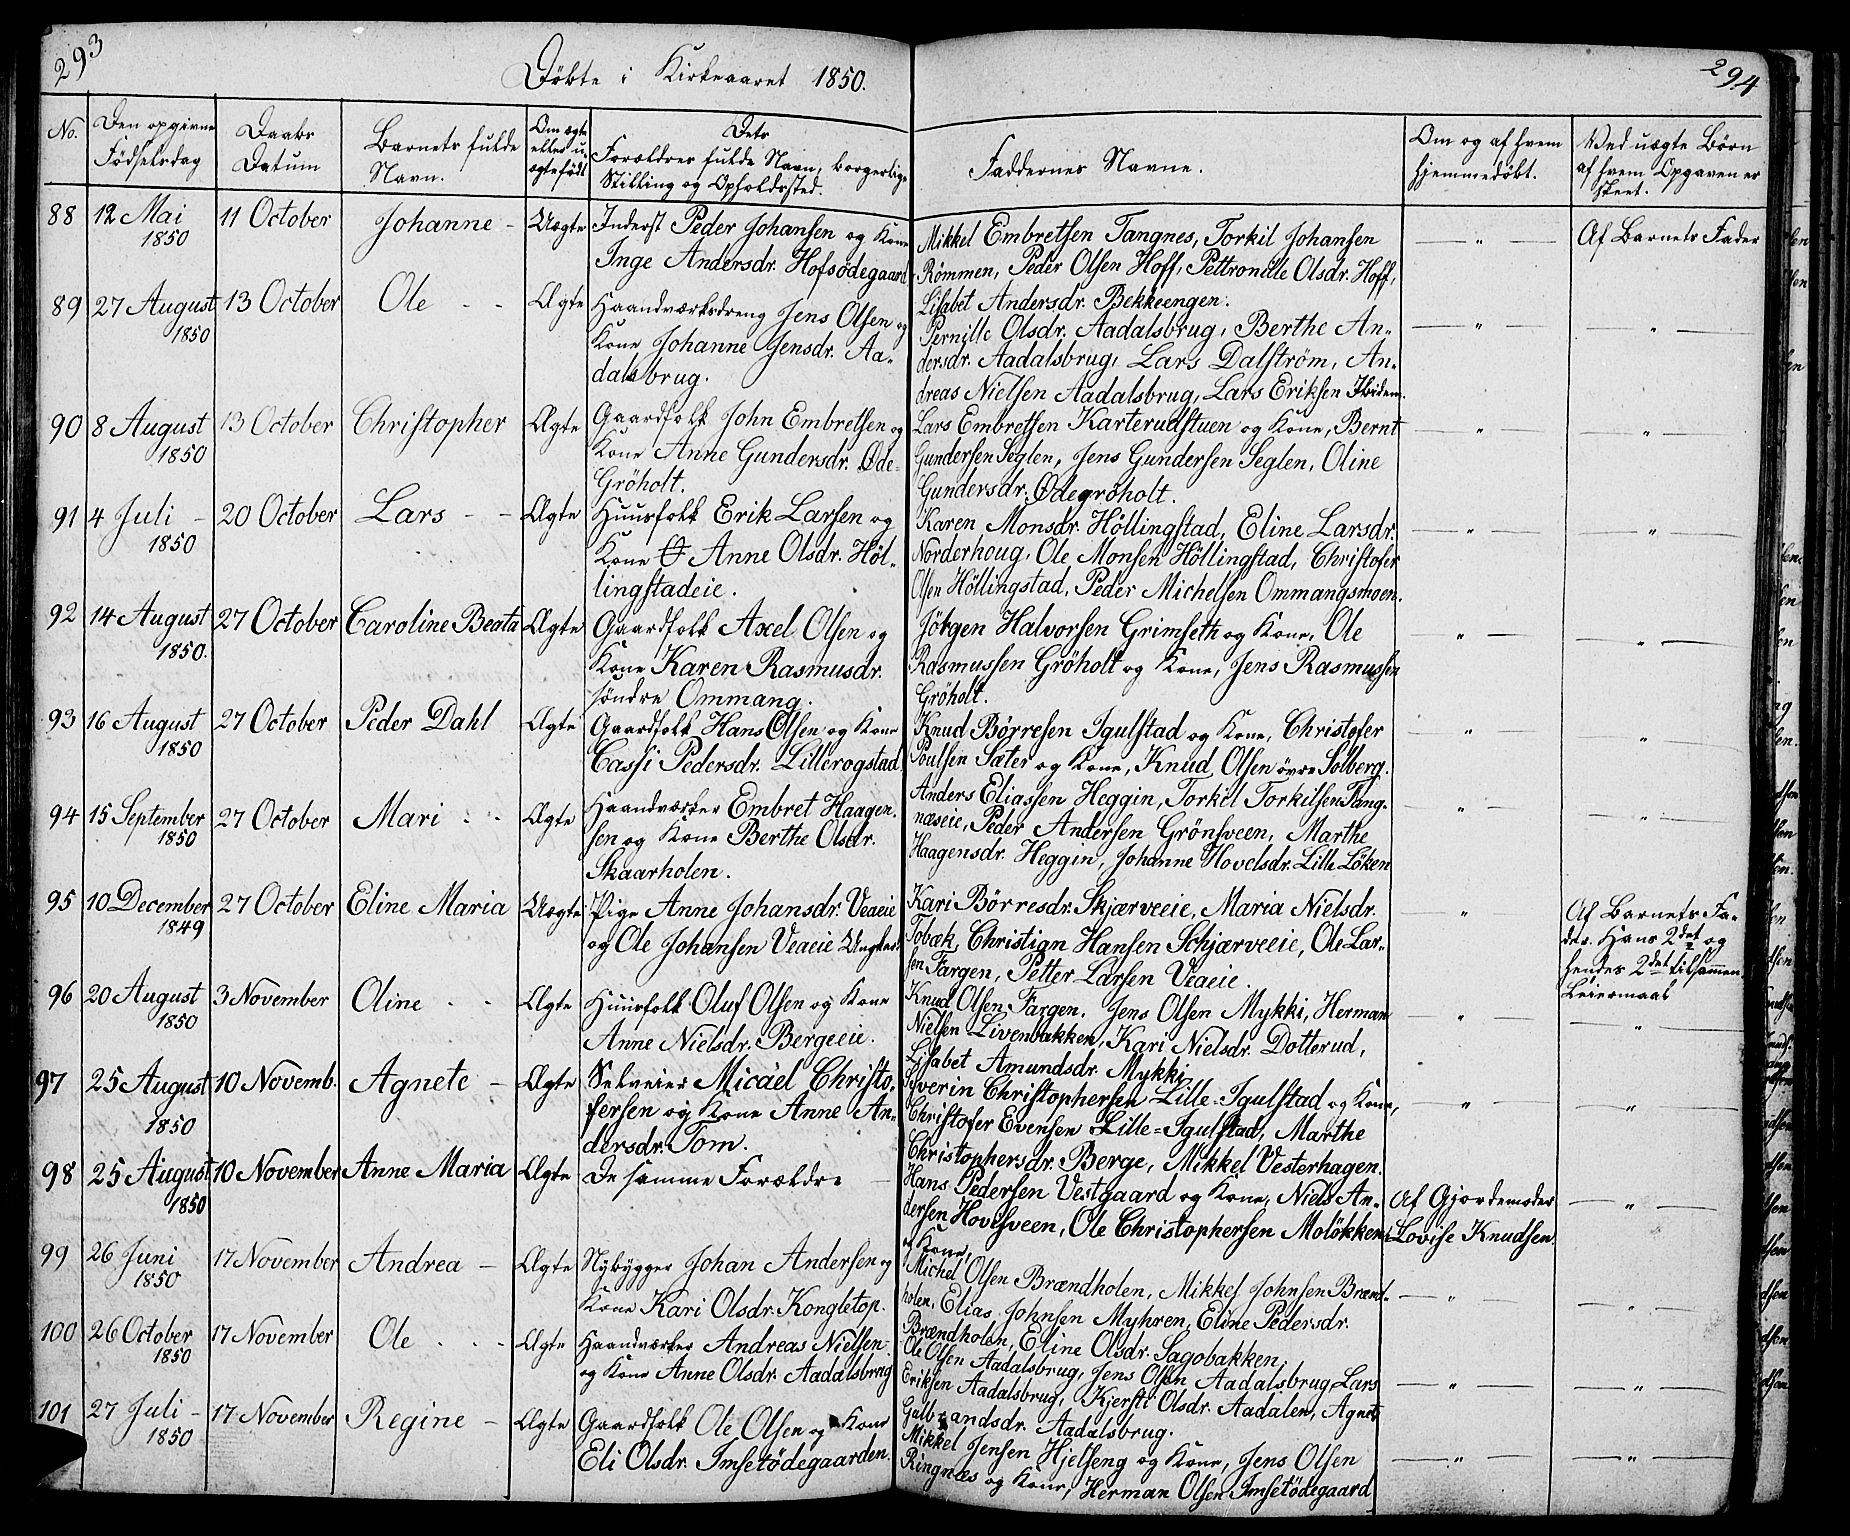 293
Døbte i Kirkeaaret 1850.
294
No.
Den opgivne
Födselsdag
Daabs
Datum
Barnets fulde
Navn.
Om ægte
eller u-
ægtefödt
Dets
Forældres fulde Navn, borgerlige
Stilling og Opholdssted.
Faddernes Navne.
Om og af hvem
hjemmedøbt.
Ved uægte Börn
af hvem Opgaven er
skeet.
88 12 Mai 11 October Johanne - Uægte
1850
Inderst Peder Johansen og Kone
Inge Andersdr. Hofsödegaard
Mikkel Embretsen Tangnes, Torkil Johansen
Römmen, Peder Olsen Hoff, Pettronille Olsdr. Hoff,
Lisabet Andersdr. Bekkeengen.
— " — Af Barnets Fader
89 27 August 13 October Ole - - Ægte
1850
Haandværksdreng Jens Olsen og
Kone Johanne Jensdr. Aa-
dalsbrug.
Pernille Olsdr. Aadalsbrug, Berthe An-
dersdr. Aadalsbrug, Lars Dalström, An-
dreas Nielsen Aadalsbrug, Lars Eriksen Ibidem.
— " — " —
90 8 August 13 October Christopher Ægte
1850
Gaardfolk John Embretsen og
Kone Anne Gundersdr. Øde-
Gröholt.
Lars Embretsen Karterudstuen og Kone, Bernt
Gundersen Seglen, Jens Gundersen Seglen, Oline
Gundersdr. Ødegröholt.
— " — " —
91 4 Juli - 20 October Lars - - Ægte
1850
Huusfolk Erik Larsen og
Kone Anne Olsdr. Höl-
lingstadeie.
Karen Monsdr. Höllingstad, Eline Larsdr.
Norderhoug, Ole Monsen Höllingstad, Christofer
Olsen Höllingstad, Peder Michelsen Ommangsmoen.
— " — " —
92 14 August 27 October Caroline Beata Ægte
1850.
Gaardfolk Axel Olsen og
Kone Karen Rasmusdr.
söndre Ommang.
Jörgen Halvorsen Grimseth og Kone, Ole
Rasmussen Gröholt og Kone, Jens Rasmussen
Gröholt.
" — " —
93 16 August 27 October Peder Dahl Ægte
1850
Gaardfolk Hans Olsen og Kone
Cassi Pedersdr. Lillerogstad
Knud Börresen Igulstad og Kone, Christofer
Poulsen Sæter og Kone, Knud Olsen övre Solberg.
" — "
94 15 September 27 October Mari - - Ægte
1850
Haandværker Embret Haagen-
sen og Kone Berthe Olsdr.
Skaarholen.
Anders Eliassen Heggin, Torkel Torkilsen Tang-
næseie, Peder Andersen Grönsveen, Marthe
Haagensdr. Heggin, Johanne Hovelsdr. Lille Löken
" — " —
95 10 December 27 October Eline Maria Uægte
1849
Pige Anne Johansdr. Veaeie
og Ole Johansen Veaeie Ungkarl
Kari Börresdr. Skjærveeie, Maria Nielsdr.
Tobak, Christian Hansen Schjærveeie, Ole Lar-
sen Fargen, Petter Larsen Veaeie.
— "
Af Barnets Fa-
der. Hans 2det og
hendes 2det tilsammen
Leiermaal
96 20 August 3 November Oline - - Ægte
1850
Huusfolk Oluf Olsen og Kone
Anne Nielsdr. Bergeeie.
Knud Olsen Fargen, Jens Olsen Mykki, Herman
Nielsen Livenbakken, Kari Nielsdr. Dotterud,
Lisabet Amundsdr. Mykki.
— " — " —
97 25 August 10 Novemb. Agnete - Ægte
1850
Selveier Micael Christo-
fersen og Kone Anne An-
dersdr. Tom.
Syverin Christophersen Lille-Igulstad og Kone,
Christofer Evensen Lille-Igulstad, Marthe
Christophersdr. Berge, Mikkel Vesterhagen.
— " — " —
98 25 August 10 November Anne Maria Ægte
1850
De samme Forældre -
Hans Pedersen Vestgaard og Kone, Niels An-
dersen Hovisveen, Ole Christophersen Molökken
og Kone,
Af Gjordemoder
Lovise Knudsen
— " —
99 26 Juni 17 November Andrea - Ægte
1850
Nybygger Johan Andersen og
Kone Kari Olsdr. Kongletop.
Michel Olsen Brændholen, Mikkel Johnsen Brænd-
holen, Elias Johnsen Myhren, Eline Pedersdr.
Brændholen, Eline Olsdr. Sagobakken,
— " — " —
100 26 October 17 November Ole - - - Ægte
1850
Haandværker Andreas Nielsen
og Kone Anne Olsdr. Aadalsbrug
Ole Olsen Aadalsbrug, Jens Olsen Aadalsbrug, Lars
Eriksen Aadalsbrug, Kjersti Olsdr. Aadalen, Agnete
Gulbrandsdr. Aadalsbrug.
— " — " —
101 27 Juli - 17 November Regine - Ægte
1850
Gaardfolk Ole Olsen og Kone
Eli Olsdr. Imsetödegaarden.
Mikkel Jensen Hjelseng og Kone, Jens Olsen
Ringnæs og Kone, Herman Olsen Imsetödegaard
— " — " —